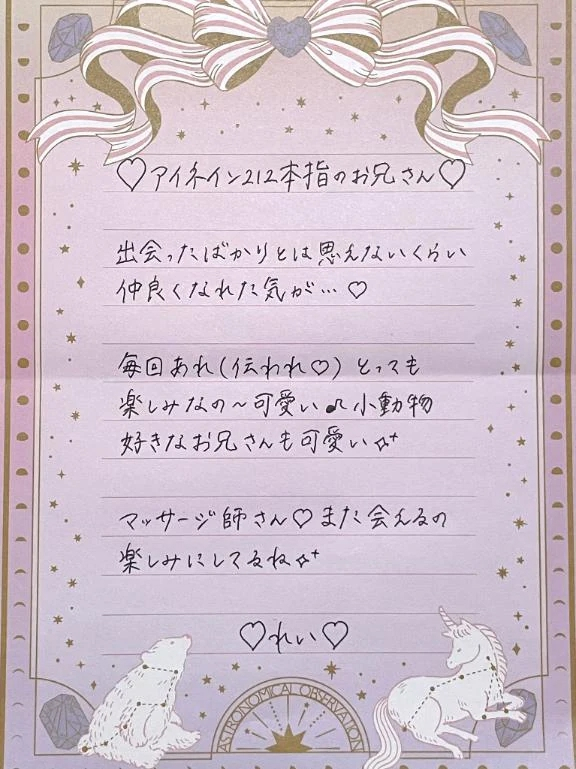 ♡アイネイン212本指のお兄さん♡
出会ったばかりとは思えないくらい
仲良くなれた気が…♡
毎回あれ(伝われ♡)とっても
楽しみなの〜可愛い♫小動物
好きなお兄さんも可愛い✧⁺
マッサージ師さん♡また会えるの
楽しみにしてるね✧⁺
♡れい♡
ASTRONOMICAL OBSERVATION